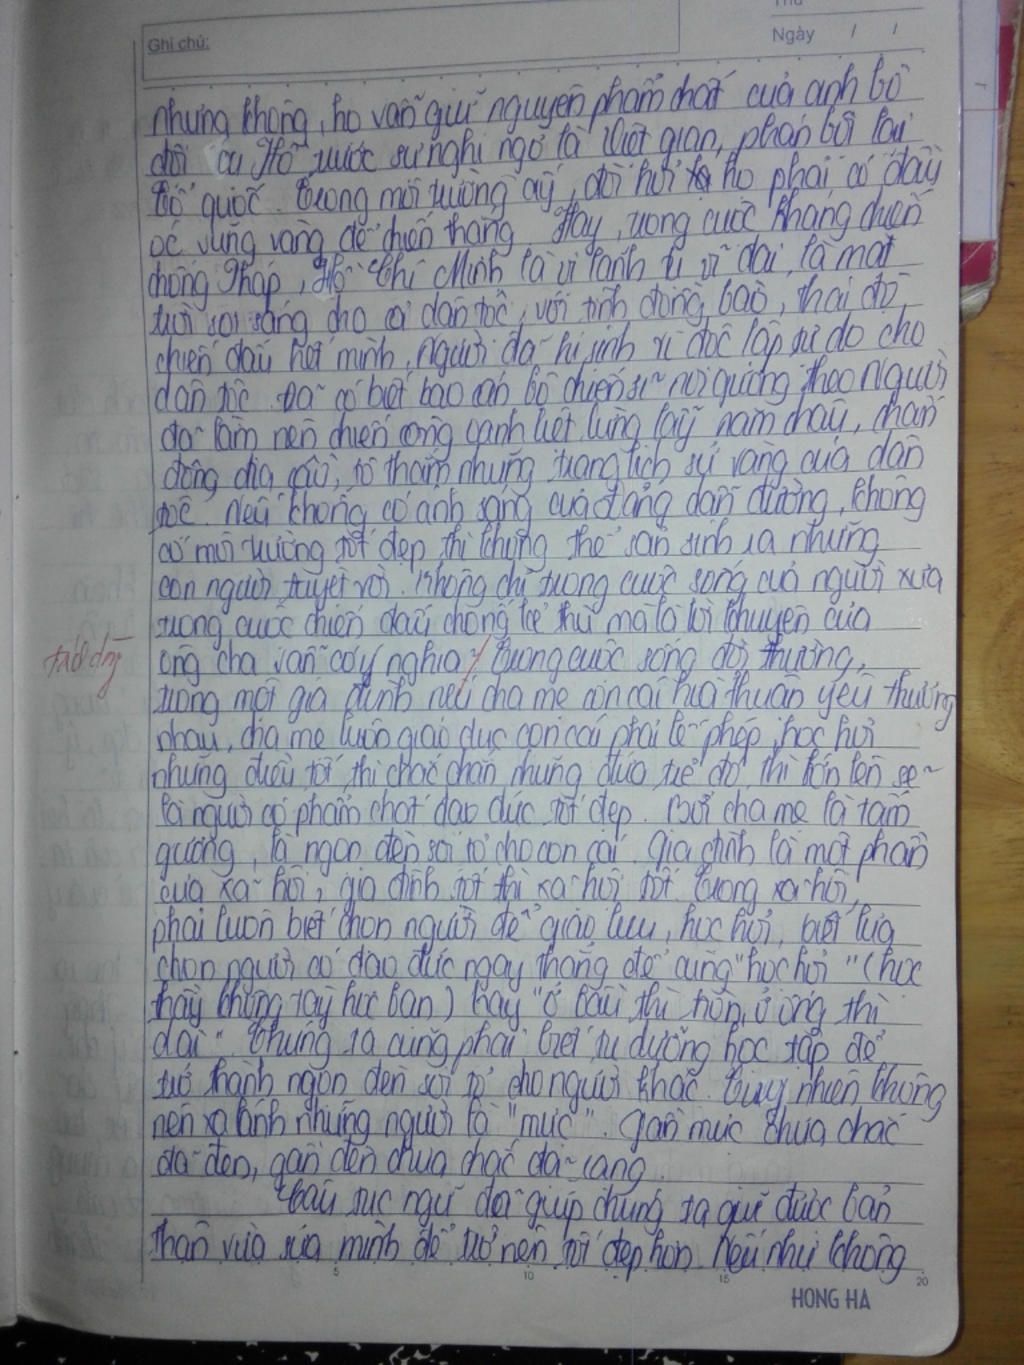 Thứ
Ghi chú:
Ngày / /
nhưng không, họ vẫn giữ nguyên phẩm chất của anh bộ
đội cụ Hồ trước sự nghi ngờ là Việt gian, phản bội lại
Tổ quốc. Trong môi trường ấy, đòi hỏi họ phải có đầy
óc vững vàng để chiến thắng. Hay, trong cuộc kháng chiến
chống Pháp, Hồ Chí Minh là vị lãnh tụ vĩ đại, là mặt
trời soi sáng cho cả dân tộc, với tình đồng bào, thái độ
chiến đấu hết mình, Người đã hi sinh vì độc lập tự do cho
dân tộc. Đã có biết bao cán bộ chiến sĩ noi gương theo Người
đã làm nên chiến công oanh liệt lừng lẫy năm châu, chấn
động địa cầu, tô thắm những trang lịch sử vàng của dân
tộc. Nếu không có ánh sáng của Đảng dẫn đường, không
có môi trường tốt đẹp thì không thể sản sinh ra những
con người tuyệt vời. Không chỉ trong cuộc sống của người xưa
trong cuộc chiến đấu chống kẻ thù mà là lời khuyên của
ông cha vẫn có ý nghĩa / Trong cuộc sống đời thường,
trong một gia đình nếu cha mẹ con cái hoà thuận yêu thương
nhau, cha mẹ luôn giáo dục con cái phải lễ phép, học hỏi
những điều tốt thì chắc chắn những đứa trẻ đó thì lớn lên sẽ
là người có phẩm chất đạo đức tốt đẹp. Bởi cha mẹ là tấm
gương, là ngọn đèn soi tỏ cho con cái. Gia đình là một phần
của xã hội, gia đình tốt thì xã hội tốt. Trong xã hội,
phải luôn biết chọn người để giao lưu, học hỏi, biết lựa
chọn người có đạo đức ngay thẳng để cùng "học hỏi" (học
thầy không tày học bạn) hay "ở bầu thì tròn, ở ống thì
dài". Chúng ta cũng phải biết tu dưỡng học tập để
trở thành ngọn đèn soi tỏ cho người khác. Tuy nhiên không
nên xa lánh những người là "mực". Gần mực chưa chắc
đã đen, gần đèn chưa chắc đã rạng.
Câu tục ngữ đã giúp chúng ta giữ được bản
thân vừa sửa mình để trở nên tốt đẹp hơn. Nếu như không
5 10 15 20
HONG HA